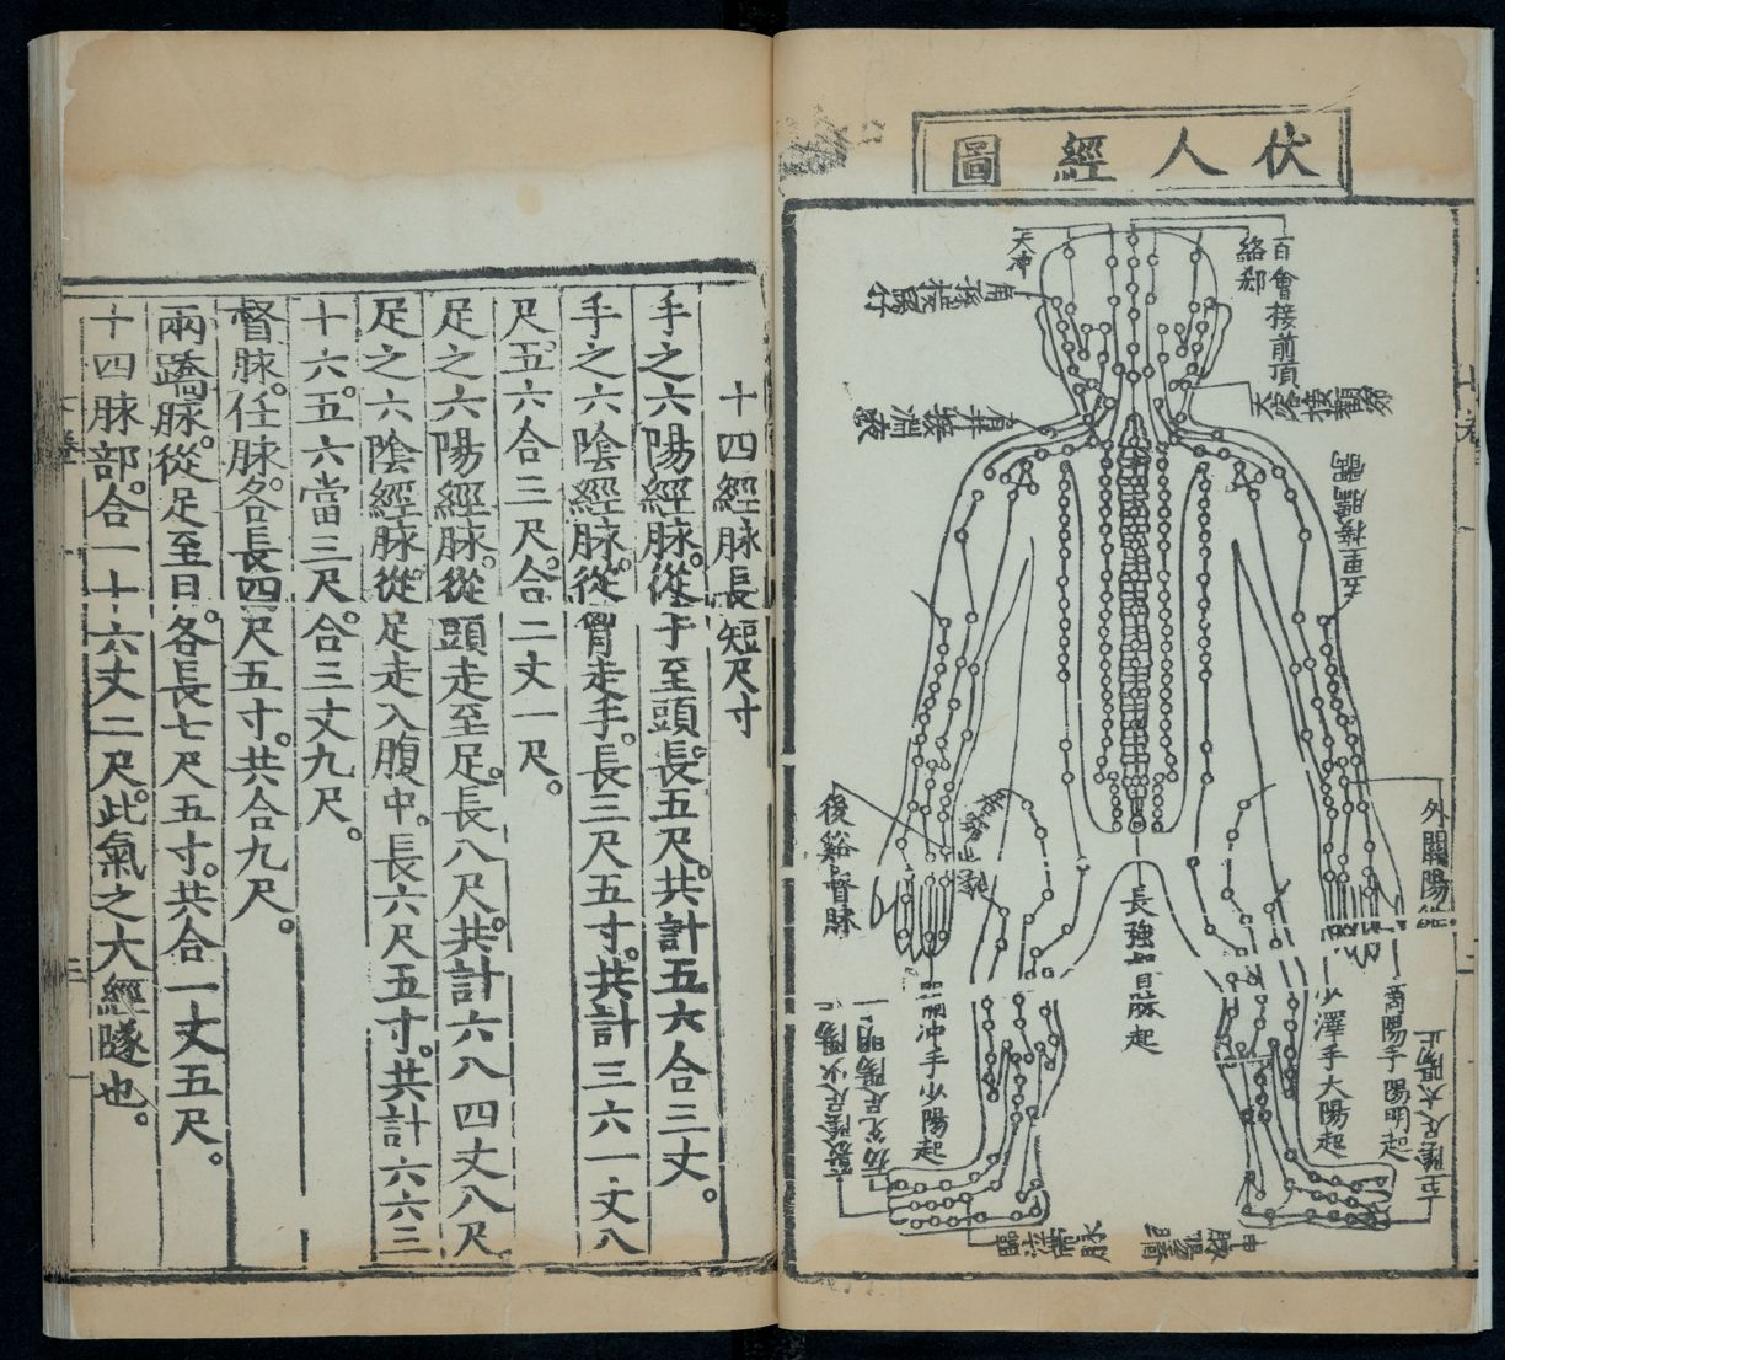 伏人經圖
百會接前頂
絡郄
天冲
肩井接淵液
五里接臑臑
外關陽維
後谿督脉
長強督脉起
關冲手少陽起
少澤手太陽起
商陽手陽明起
至陰足太陽止
厲兌足陽明止
竅陰足少陽止
臨泣帶脉
申脉陽蹻
十四經脉長短尺寸
手之六陽經脉。從手至頭。長五尺。共計五六合三丈。
手之六陰經脉。從胷走手。長三尺五寸。共計三六一丈八
尺。五六合三尺。合二丈一尺。
足之六陽經脉。從頭走至足。長八尺。共計六八四丈八尺
足之六陰經脉。從足走入腹中。長六尺五寸。共計六六三
十六。五六當三尺。合三丈九尺。
督脉。任脉。各長四尺五寸。共合九尺。
兩蹻脉。從足至目。各長七尺五寸。共合一丈五尺。
十四脉部。合一十六丈二尺。此氣之大經隧也。